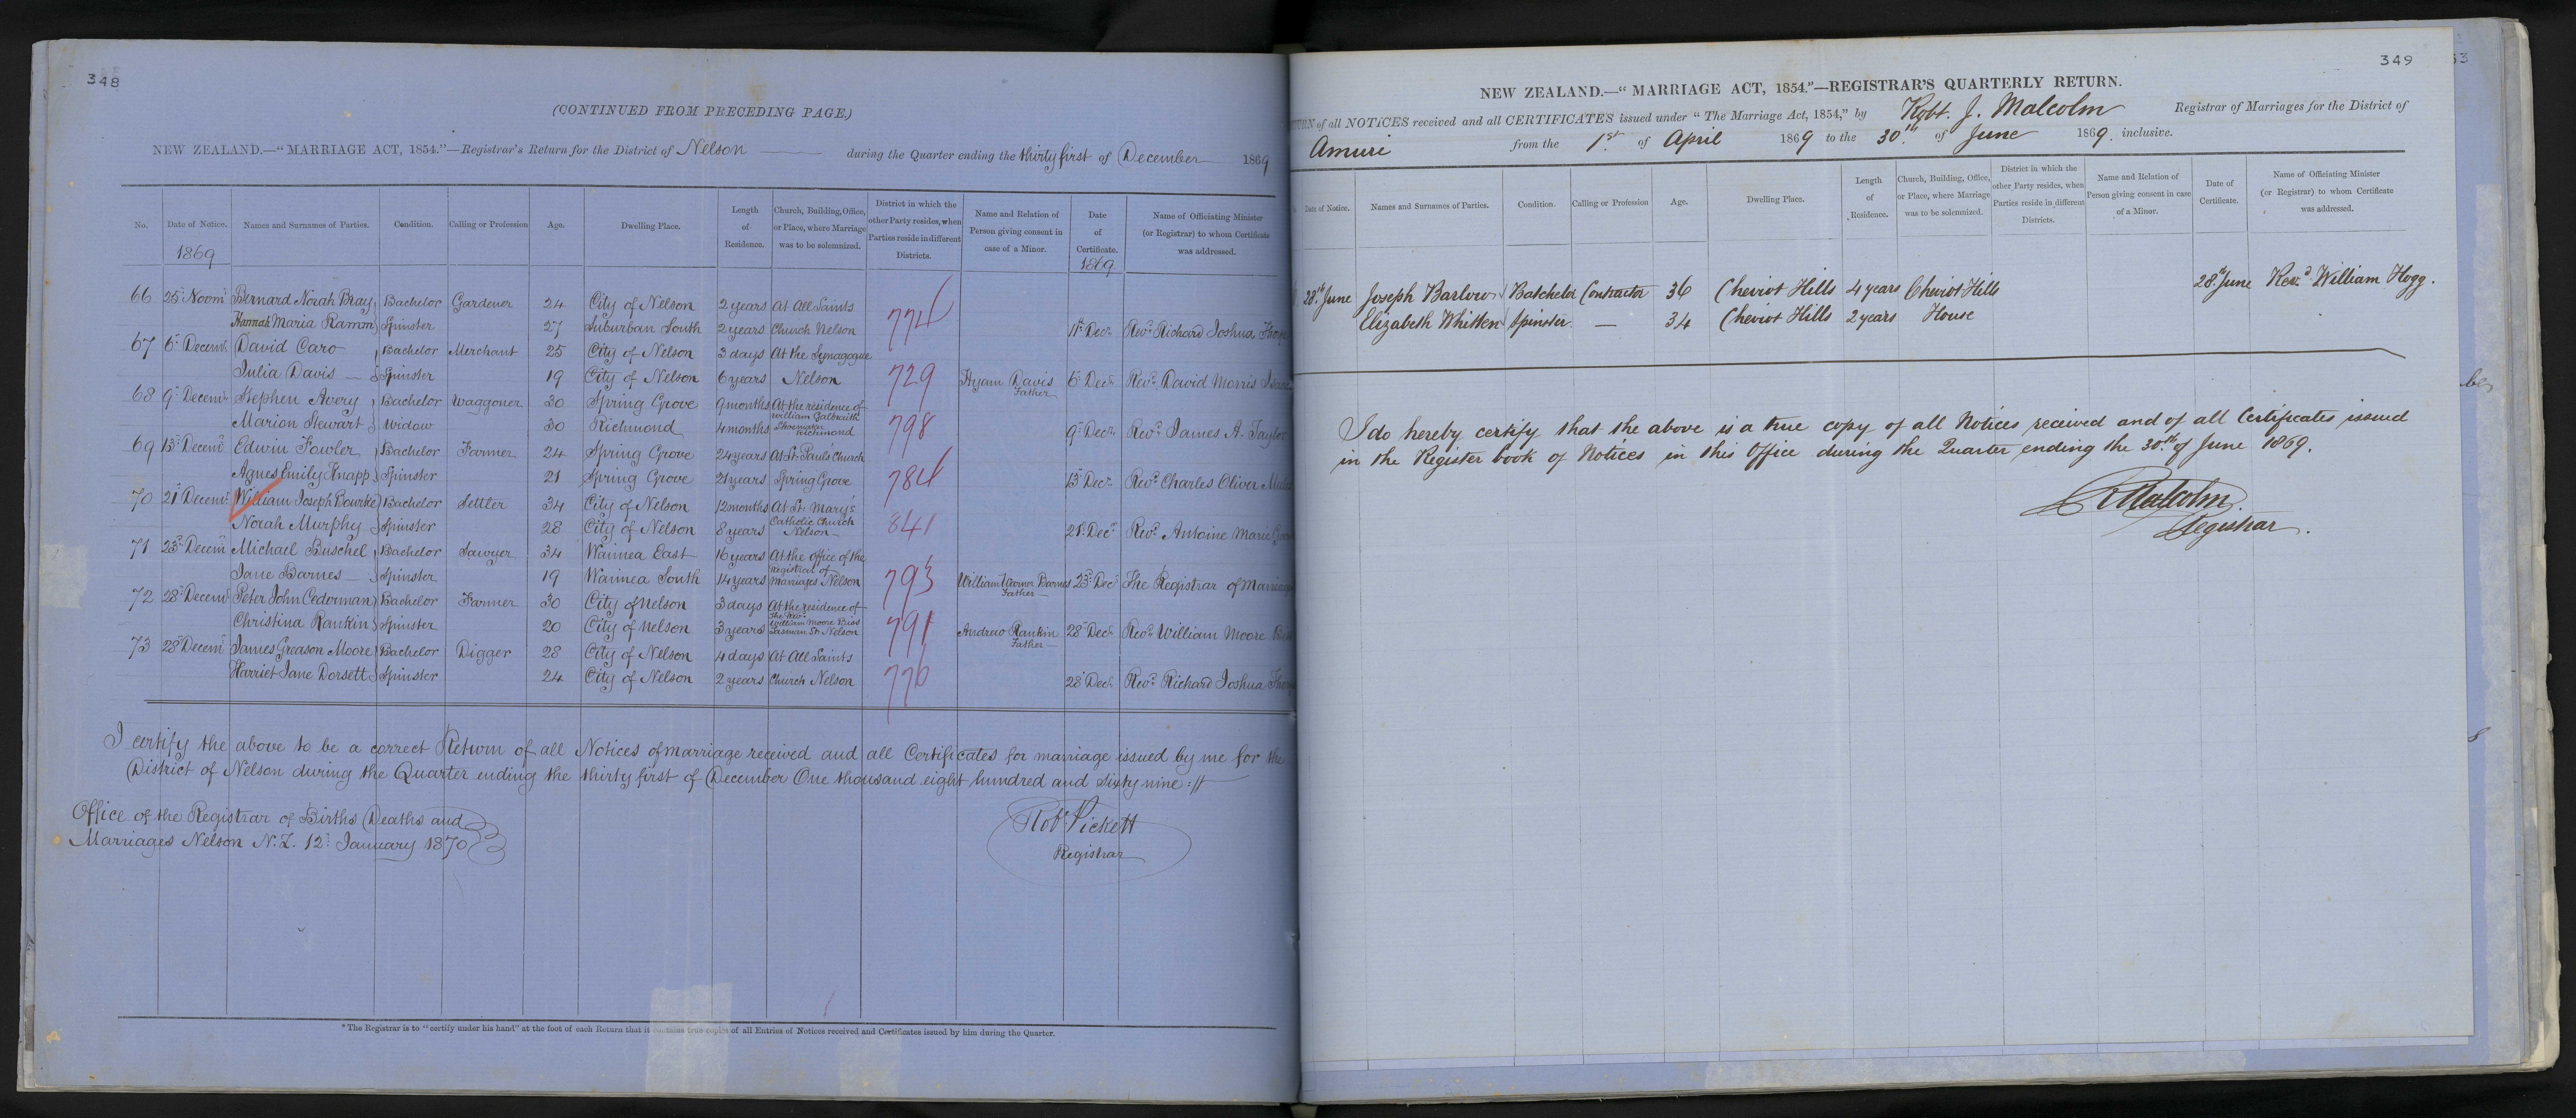 348
(CONTINUED FROM PRECEDING PAGE.)
NEW ZEALAND.—"MARRIAGE ACT, 1854."—Registrar's Return for the District of Nelson during the Quarter ending the thirty first of December 1869
No. Date of Notice. Names and Surnames of Parties. Condition. Calling or Profession Age. Dwelling Place. Length of Residence. Church, Building, Office, or Place, where Marriage was to be solemnized. District in which the other Party resides, when Parties reside in different Districts. Name and Relation of Person giving consent in case of a Minor. Date of Certificate. Name of Officiating Minister (or Registrar) to whom Certificate was addressed.
1869 1869.
66 Bernard Norah Bray Bachelor Gardener 24 City of Nelson 2 years At All Saints
Hannah Maria Ramm Spinster 27 Suburban South 2 years Church Nelson 774 11th Decr Revd Richard Joshua
67 6th Decemr David Caro Bachelor Merchant 25 City of Nelson 3 days At the Synagogue
Julia Davis Spinster 19 City of Nelson 6 years Nelson 729 Hyam Davis Father 6th Decr Revd David Morris
68 9th Decemr Stephen Avery Bachelor Waggoner 30 Spring Grove 9 months At the residence of William Galbraith
Marion Stewart Widow 30 Richmond 4 months Shoemaker Richmond 798 9th Decr Revd James A. Taylor
69 13th Decemr Edwin Fowler Bachelor Farmer 24 Spring Grove 24 years At St Pauls Church
Agnes Emily Knapp Spinster 21 Spring Grove 21 years Spring Grove 784 13th Decr Revd Charles Oliver
70 21st Decemr William Joseph Bourke Bachelor Settler 34 City of Nelson 12 months At St. Mary's
Norah Murphy Spinster 28 City of Nelson 8 years Catholic Church Nelson 841 21st Decr Revd Antoine Marie
71 23rd Decemr Michael Buschel Bachelor Sawyer 34 Waimea East 16 years At the office of the
Jane Barnes Spinster 19 Waimea South 14 years registrar of Marriages Nelson 793 William Warner Barnes Father 23rd Decr The Registrar of
72 28th Decemr Peter John Cederman Bachelor Farmer 30 City of Nelson 3 days At the residence of
Christina Rankin Spinster 20 City of Nelson 3 years The Revd William Moore Biss Tasman St Nelson 791 Andrew Rankin Father 28th Decr Revd William Moore
73 28th Decemr James Greason Moore Bachelor Digger 28 City of Nelson 4 days At All Saints
Harriet Jane Dorsett Spinster 24 City of Nelson 2 years Church Nelson 776 28th Decr Revd Richard Joshua
I certify the above to be a correct Return of all Notices of marriage received and all Certificates for marriage issued by me for the
District of Nelson during the Quarter ending the thirty first of December One thousand eight hundred and sixty nine
Office of the Registrar of Births Deaths and
Marriages Nelson N.Z. 12th January 1870
Robt Pickett
Registrar
*The Registrar is to "certify under his hand" at the foot of each Return that it contains true copies of all Entries of Notices received and Certificates issued by him during the Quarter.
349
NEW ZEALAND.—"MARRIAGE ACT, 1854."—REGISTRAR'S QUARTERLY RETURN.
of all NOTICES received and all CERTIFICATES issued under "The Marriage Act, 1854," by Robt. J. Malcolm Registrar of Marriages for the District of
Amuri from the 1st of April 1869 to the 30th of June 1869. inclusive.
Date of Notice. Names and Surnames of Parties. Condition. Calling or Profession Age. Dwelling Place. Length of Residence. Church, Building, Office, or Place, where Marriage was to be solemnized. District in which the other Party resides, when Parties reside in different Districts. Name and Relation of Person giving consent in case of a Minor. Date of Certificate. Name of Officiating Minister (or Registrar) to whom Certificate was addressed.
28th June Joseph Barlow Batchelor Contractor 36 Cheviot Hills 4 years Cheviot Hills 28th June Revd William Hogg.
Elizabeth Whitten Spinster — 34 Cheviot Hills 2 years House
I do hereby certify that the above is a true copy of all Notices received and of all Certificates issued
in the Register book of Notices in this Office during the Quarter ending the 30th of June 1869.
R Malcolm
Registrar.